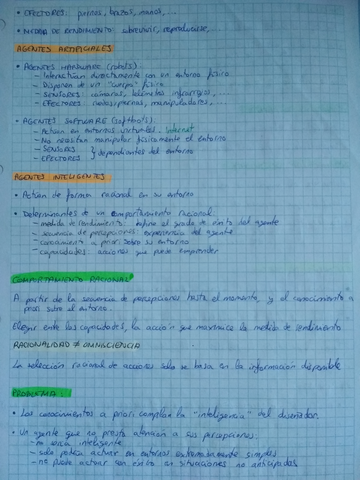 • EFECTORES: piernas, brazos, manos, ...
• MEDIDA DE RENDIMIENTO: sobrevivir, reproducirse, ...
AGENTES ARTIFICIALES
• AGENTES HARDWARE (robots).
– Interactúan directamente con un entorno físico
– Disponen de un "cuerpo" físico
– SENSORES: cámaras, telémetros infrarrojos, ...
– EFECTORES: ruedas, piernas, manipuladores, ...
• AGENTES SOFTWARE (softbots).
– Actúan en entornos virtuales. Internet
– No necesitan manipular físicamente el entorno
– SENSORES } dependientes del entorno
– EFECTORES
AGENTES INTELIGENTES
• Actúan de forma racional en su entorno
• Determinantes de un comportamiento racional:
– medida de rendimiento: define el grado de éxito del agente
– secuencia de percepciones: experiencia del agente
– conocimiento a priori sobre su entorno
– capacidades: acciones que puede emprender
COMPORTAMIENTO RACIONAL
A partir de la secuencia de percepciones hasta el momento, y el conocimiento a
priori sobre el entorno.
Elegir entre las capacidades, la acción que maximice la medida de rendimiento
RACIONALIDAD ≠ OMNISCIENCIA
La selección racional de acciones solo se basa en la información disponible
PROBLEMA:
• Los conocimientos a priori compilan la "inteligencia" del diseñador.
• Un agente que no presta atención a sus percepciones:
– no sería inteligente
– solo podría actuar en entornos extremadamente simples
– no puede actuar con éxito en situaciones no anticipadas